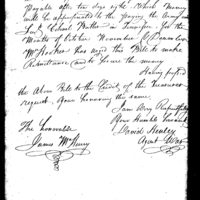 Payable after ten days sight. Which Money
will be appropriated to the paying the Army
for Colonel Butler in Tennessee for the
Months of October November & December
Mr has used this Bill to make
Remittance and to secure the money
Having passed
the Above Bill to the Credit of the Treasurer
request, Your honoring the same
I am Very Respectfully
The Honorable Your Humble Servant
James McHenry David Henley
Agent War